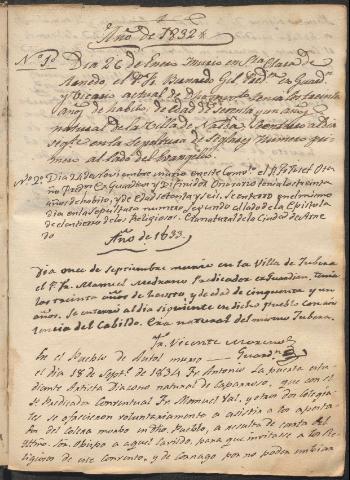 Año de 1832
Nº 1º Dia 26 de Enero murio en Sta Clara de
Arnedo, el P. Fr. Bernardo Gil Predr. ex Guardn
y Vicario actual de
años de habito, de edad de sesenta y un años,
natural de la Villa de Nalda. Enterrose al dia
sigte en la sepultura de Seglares numero
al lado del Evangelio.
Nº 2º Dia 24 de Noviembre murio en este Convto el P. Fr. Josef
Predor Ex Guardian y Difinidor Onorario tenia los treinta
años de habito, y de Edad setenta y seis. Se enterro que el mismo
dia en la sepultura numero segundo al lado de la Epistola
de el entierro de los Religiosos. Era natural de la Ciudad de Arne
do
Año de 1833.
Dia once de septiembre murio en la Villa de Tudera
el P. Fr. Manuel Medrano Predicador exGuardian, tenia
los treinta años de havito, y de edad de cinquenta y un
años. Se enterró al dia siguiente en dicho Pueblo con asis
tencia del Cabildo. Era natural del mismo
Fr. Vicente Moreno
Guardn
En el Pueblo de Autol murio
el dia 18 de Septe de 1834 Fr. Antonio La puerta estu
diante Artista Diacono natural de Caparroso, que con el
P. Predicador Conventual Fr. Manuel Val, y otros dos Colegia
les se ofrecieron voluntariamente a asistir a los apesta
dos del Colera morbo en dho. Pueblo, a resulta de carta del
Illmo. Sor. Obispo a aquel Cavildo, para que invitase a los Re
ligiosos de este Convento, y de Cornago por no poder